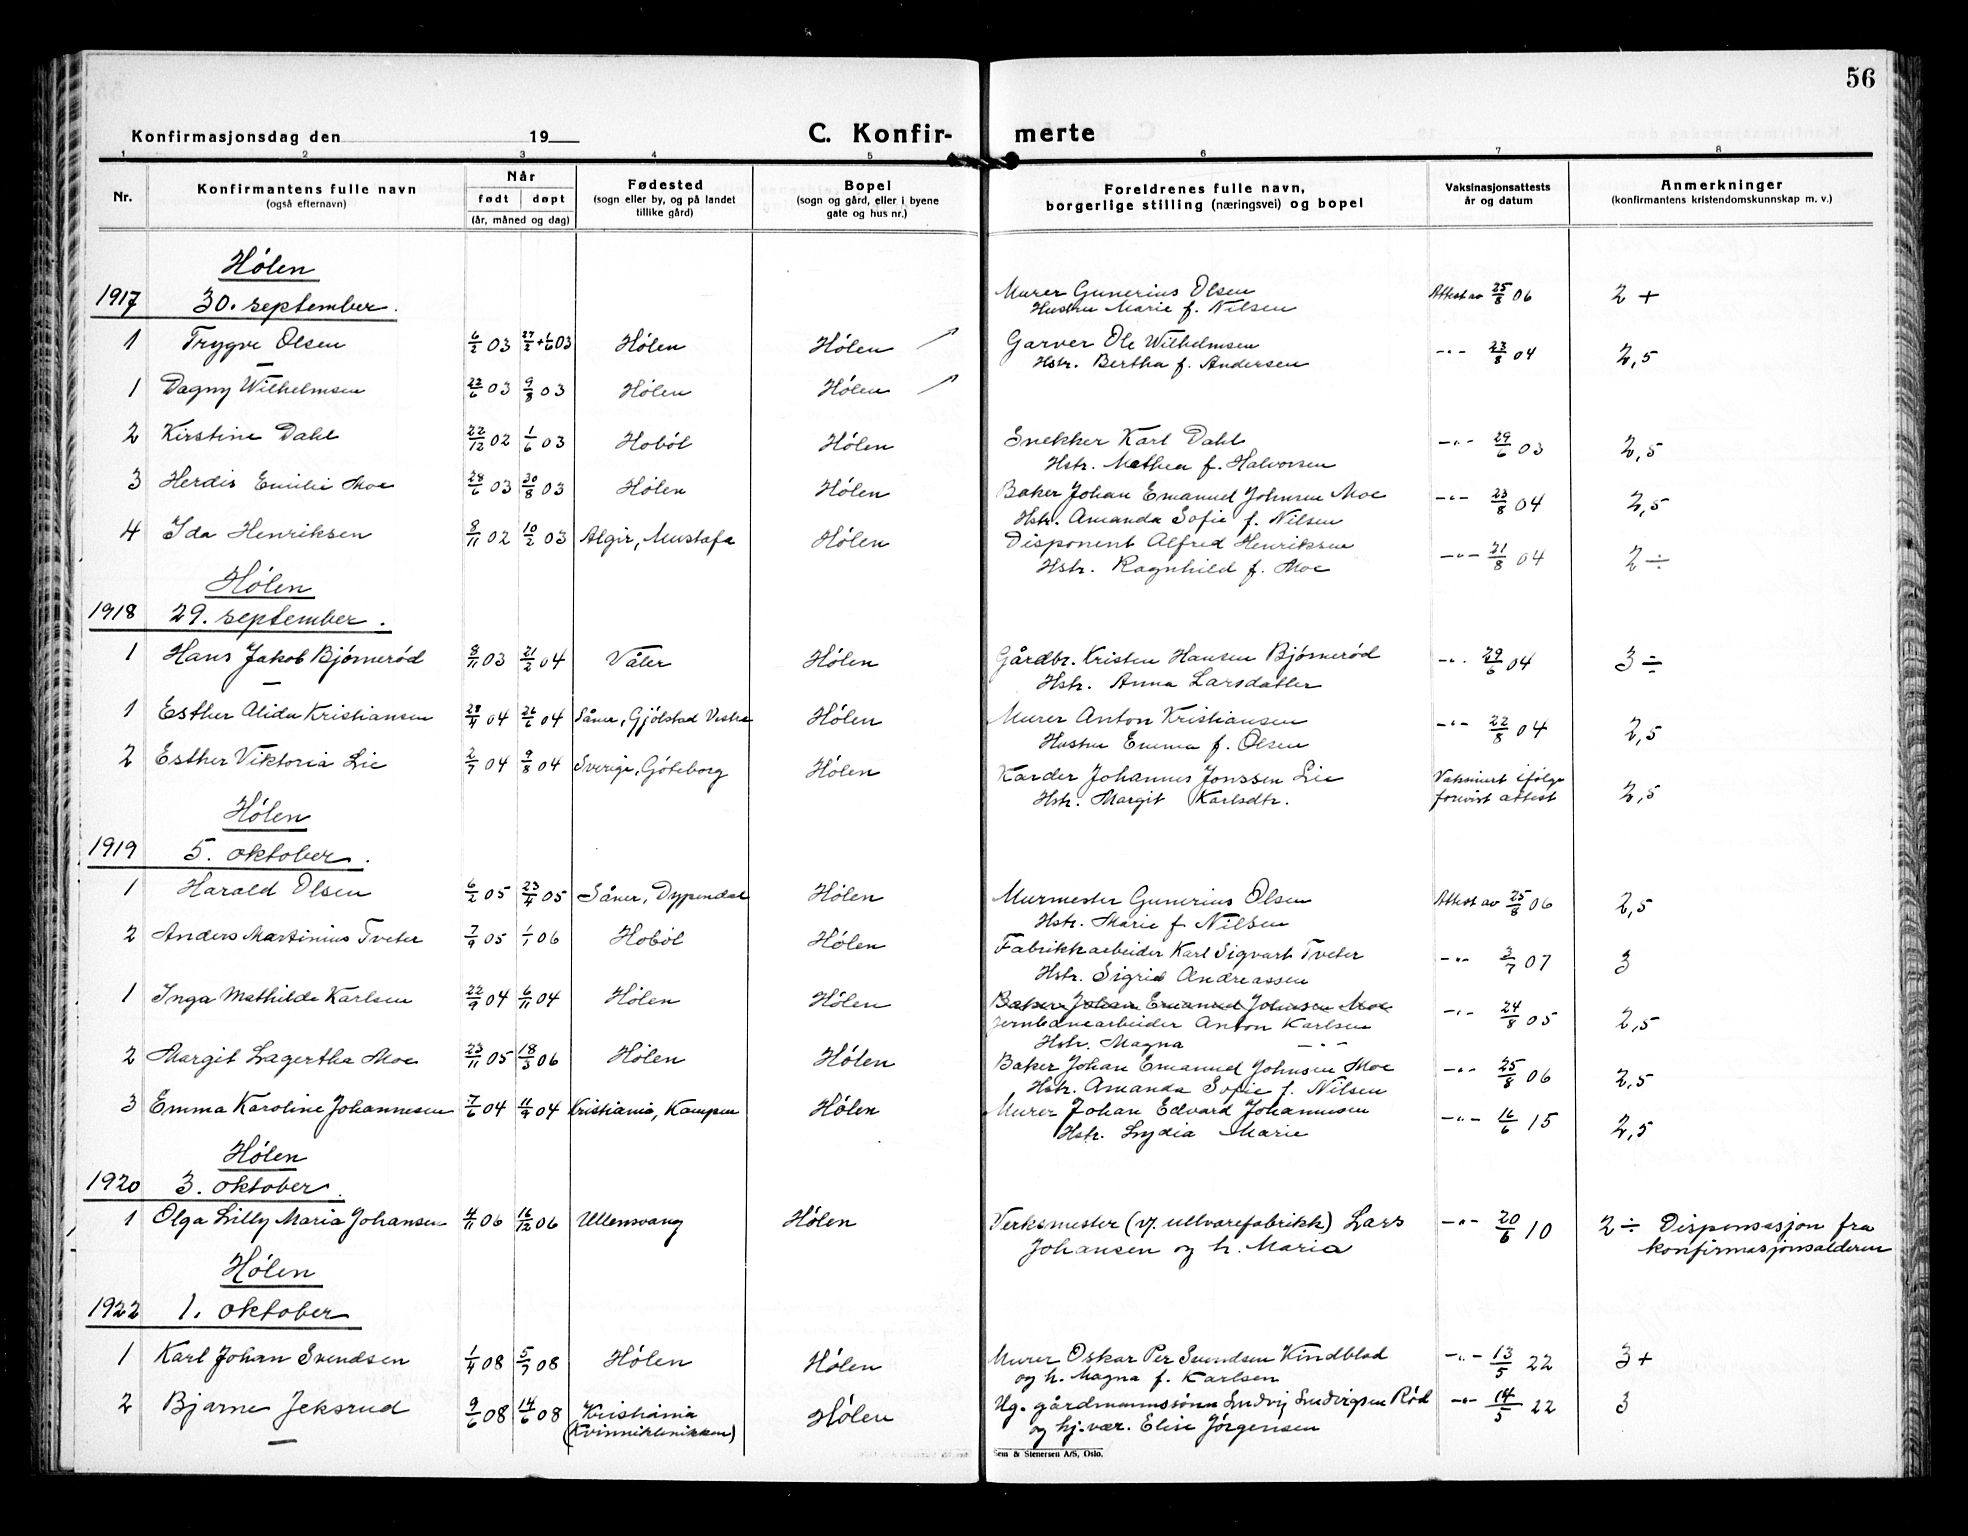 56
Konfirmasjonsdag den 19
C. Konfir- merte
1 2 3 4 5 6 7 8
Nr.
Konfirmantens fulle navn
(også efternavn)
Når
født døpt
(år, måned og dag)
Fødested
(sogn eller by, og på landet
tillike gård)
Bopel
(sogn og gård, eller i byene
gate og hus nr.)
Foreldrenes fulle navn,
borgerlige stilling (næringsvei) og bopel
Vaksinasjonsattests
år og datum
Anmerkninger
(konfirmantens kristendomskunnskap m. v.)
Hølen
1917 30. september.
1 Trygve Olsen 6/2 03 27/2 + 1/6 03 Hølen Hølen Murer Gunerius Olsen Attest av 25/8 06 2 +
Hustru Marie f. Nilsen
1 Dagny Wilhelmsen 22/6 03 9/8 03 Hølen Hølen Garver Ole Wilhelmsen -"- 23/8 04 2,5
Hstr. Bertha f. Andersen
2 Kirstine Dahl 22/12 02 1/6 03 Hobøl Hølen Snekker Karl Dahl -"- 29/6 03 2,5
Hstr. Mathea f. Halvorsen
3 Herdis Emilie Moe 28/6 03 30/8 03 Hølen Hølen Baker Johan Emanuel Johnsen Moe -"- 23/8 04 2,5
Hstr. Amanda Sofie f. Nilsen
4 Ida Henriksen 8/11 02 10/2 03 Algir, Mustafa Hølen Disponent Alfred Henriksen -"- 21/8 04 2 ÷
Hstr. Ragnhild f. Moe
Hølen
1918 29. september.
1 Hans Jakob Bjørnerød 8/11 03 21/2 04 Våler Hølen Gårdbr. Kristen Hansen Bjørnerød -"- 29/6 04 3 ÷
Hstr. Anna Larsdatter
1 Esther Alida Kristiansen 28/4 04 26/6 04 Såner, Gjølstad Vestre Hølen Murer Anton Kristiansen -"- 22/8 04 2,5
Hustru Emma f. Olsen
2 Esther Viktoria Lie 2/7 04 9/8 04 Sverige, Göteborg Hølen Karder Johannes Jonssen Lie Vaksinert ifølge
Hstr. Margit Karlsdtr. forevist attest 2,5
Hølen
1919 5. oktober.
1 Harald Olsen 6/2 05 23/4 05 Såner, Dypendal Hølen Murmester Gunerius Olsen Attest av 25/8 06 2,5
Hstr. Marie f. Nilsen
2 Anders Martinius Tveter 7/9 05 1/1 06 Hobøl Hølen Fabrikkarbeider Karl Sigvart Tveter -"- 3/7 07 3
Hstr. Sigrid Andreassen
1 Inga Mathilde Karlsen 22/9 04 6/11 04 Hølen Hølen Baker Johan Emanuel Johnsen Moe
Jernbanearbeider Anton Karlsen -"- 24/8 05 2,5
Hstr. Magna -"-
2 Margit Lagertha Moe 23/11 05 18/3 06 Hølen Hølen Baker Johan Emanuel Johnsen Moe -"- 25/8 06 2,5
Hstr. Amanda Sofie f. Nilsen
3 Emma Karoline Johannesen 7/6 04 11/9 04 Kristiania, Kampen Hølen Murer Johan Edvard Johannesen -"- 16/6 15 2,5
Hstr. Lydia Marie
Hølen
1920 3. oktober.
1 Olga Lilly Maria Johansen 4/11 06 16/12 06 Ullensvang Hølen Verksmester (v/ ullvarefabrikk) Lars -"- 20/6 10 2 ÷ Dispensasjon fra
Johansen og h. Maria konfirmasjonsalderen
Hølen
1922 1. oktober
1 Karl Johan Svendsen 1/4 08 5/7 08 Hølen Hølen Murer Oskar Per Svendsen Kindblad -"- 13/5 22 3+
og h. Magna f. Karlsen
2 Bjarne Jeksrud 9/6 08 14/6 08 Kristiania Hølen Ug. gårdmannssønn Ludvig Ludvigsen Rød -"- 14/5 22 3
(Kvinneklinikken) og hj.vær. Elise Jørgensen
Sem & Stenersen A/S, Oslo.